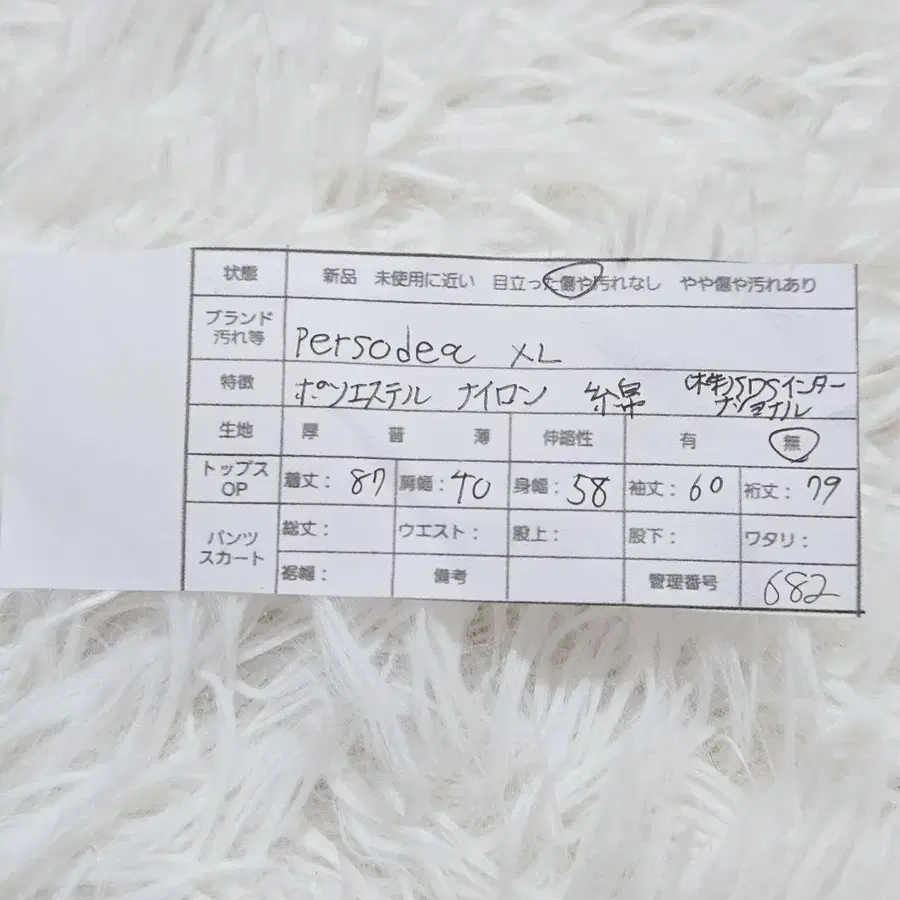 状態 新品 未使用に近い 目立った傷や汚れなし やや傷や汚れあり
ブランド
汚れ等
Persodea XL
特徴 ポリエステル ナイロン (株)SDSインター
ナショナル
生地 厚 普 薄 伸縮性 有 無
トップス
OP
着丈: 87 肩幅: 40 身幅: 58 袖丈: 60 裄丈: 79
パンツ
スカート
総丈: ウエスト: 股上: 股下: ワタリ:
裾幅: 備考 管理番号 682